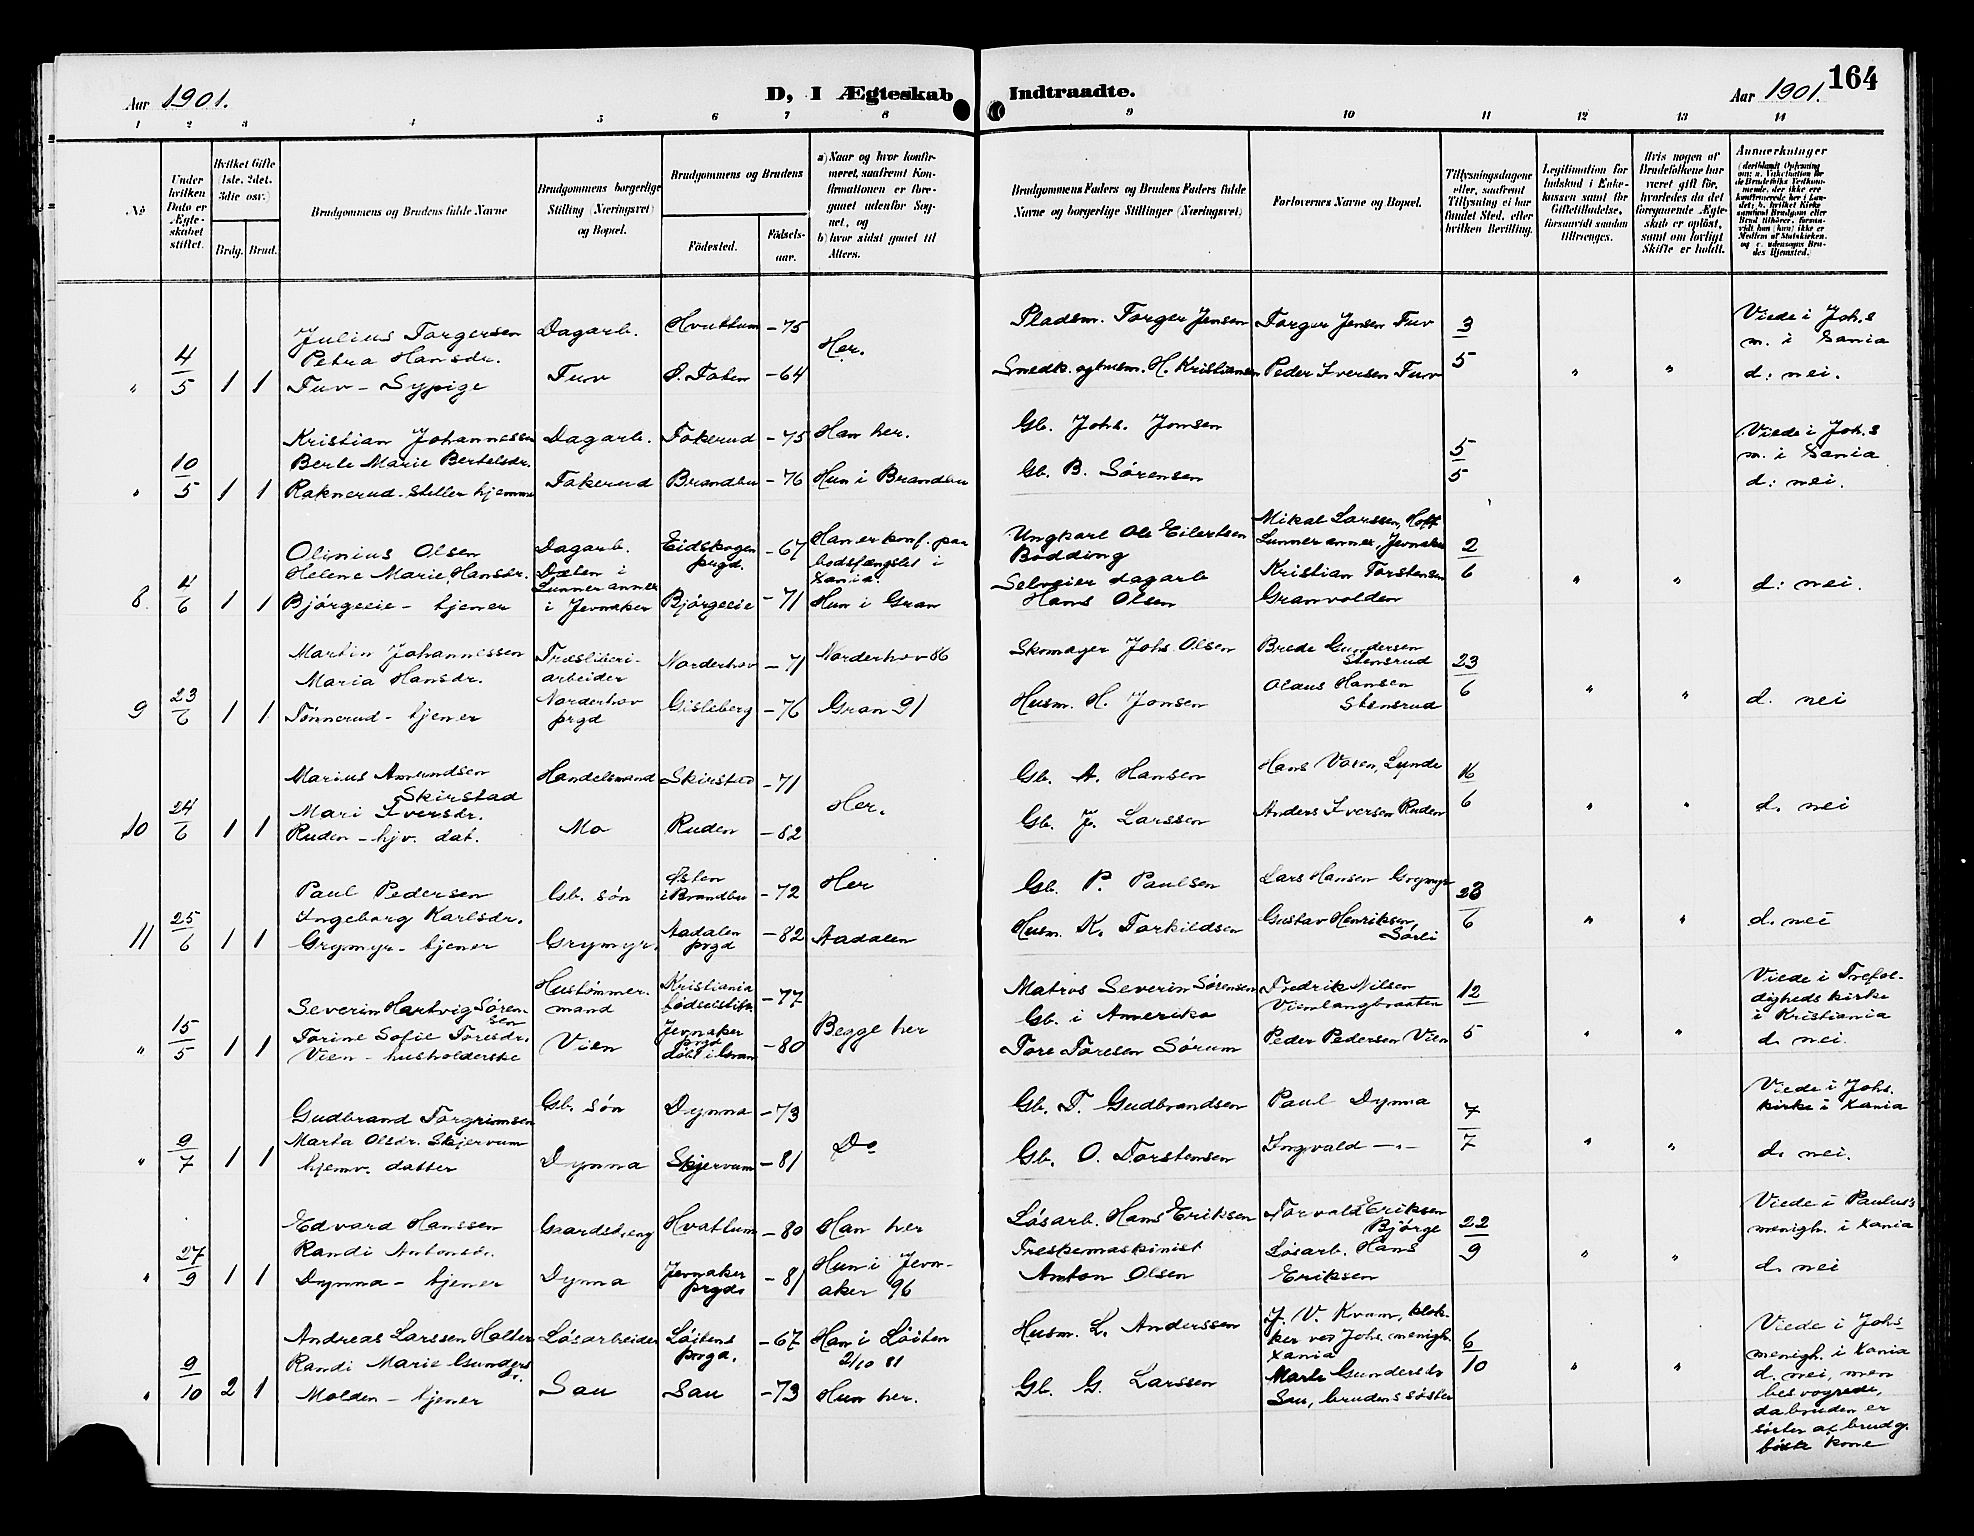 164
Aar 1901.
D, I Ægteskab Indtraadte.
Aar 1901.
1 2 3 4 5 6 7 8 9 10 11 12 13 14
No
Under hvilken Dato er Ægteskabet stiftet.
Hvilket Gifte (1ste, 2det, 3die osv.)
Brdg. Brud.
Brudgommens og Brudens fulde Navne
Brudgommens borgerlige Stilling (Næringsvei) og Bopæl.
Brudgommens og Brudens
Fødested.
Fødselsaar.
a) Naar og hvor konfirmeret, saafremt Konfirmationen er foregaaet udenfor Sognet, og
b) hvor sidst gaaet til Alters.
Brudgommens Faders og Brudens Faders fulde Navne og borgerlige Stillinger (Næringsvei)
Forlovernes Navne og Bopæl.
Tillysningsdagene eller, saafremt Tillysning ei har fundet Sted, efter hvilken Bevilling.
Legitimation for Indskud i Enkekassen samt for Giftetilladelse, forsaavidt saadan tiltrænges.
Hvis nogen af Brudefolkene har været gift før, hvorledes da det foregaaende Ægteskab er opløst, samt om lovligt Skifte er holdt.
Anmærkninger
" 4/5 1 1
Julius Torgersen
Petra Hansdr.
Tuv - Sypige
Dagarb.
Tuv
Hvattum -75
Ø. Toten -64
Her.
Pladsm. Torger Jensen
Snedk. og husm. H. Kristiansen
Torger Jensen Tuv
Peder Iversen Tuv
3/5
" "
Viede i Joh.s
m. i Xania
d: nei.
" 10/5 1 1
Kristian Johannessen
Berte Marie Bertelsdr.
Raknerud - steller hjemme
Dagarb.
Fakerud
Fakerud -75
Brandbu -76
Han her.
Hun i Brandbu
Gb. Johs. Jonsen
Gb. B. Sørensen
5/5
Viede i Joh.s
m. i Xania
d: nei.
8 4/6 1 1
Olinius Olsen
Helene Marie Hansdr.
Bjørgeeie - tjener
Dagarb.
Dælen i
Lunner anner
i Jevnaker
Eidskogen
prgd. -67
Bjørgeeie -71
Han er konf. paa
bodsfængslet i
Xania.
Hun i Gran
Ungkarl Ole Eilertsen
Bødding
Selveier dagarb
Hans Olsen
Mikal Larssen, Hoff
Lunner anner, Jevnaker
Kristian Torstensen
Granvolden
2/6
" "
d: nei.
9 23/6 1 1
Martin Johannessen
Maria Hansdr.
Tønnerud - tjener
Træsliberi-
arbeider
Norderhov
prgd
Norderhov -71
Gisleberg -76
Norderhov 86
Gran 91
Skomager Johs Olsen
Husm. H. Jonsen
Brede Gundersen
Stensrud
Olaus Hansen
Stensrud
23/6
" "
d. nei
10 24/6 1 1
Marius Amundsen
Skirstad
Mari Iversdr.
Ruden - hjv. dat.
Handelsmand
Mo
Skirstad -71
Ruden -82
Her.
Gb. A. Hansen
Gb. J. Larssen
Hans Vasen, Lynde
Anders Iversen Ruden
16/6
" "
d. nei
11 25/6 1 1
Paul Pedersen
Ingeborg Karlsdr.
Grymyr - tjener
Gb. søn
Grymyr.
Østen
i Brandbu -72
Aadalen
prgd -82
Her
Aadalen
Gb. P. Paulsen
Husm. K. Torkildsen
Lars Hansen Grymyr
Gustav Henriksen,
Sørli
23/6
" "
d. nei
" 15/5 1 1
Severin Hartvig Søren-
sen
Torine Sofie Toresdr.
Vien - husholderske
Hustømmer-
mand
Vien
Kristiania
fødselsstift. -77
Jevnaker
prgd
døbt i Gran -80
Begge her
Matros Severin Sørensen
Gb. i Amerika
Tore Toresen Sørum
Fredrik Nilsen
Vienlangbraaten
Peder Pedersen Vien
12/5
" "
Viede i Trefol-
digheds kirke
i Kristiania
d. nei.
" 9/7 1 1
Gudbrand Torgrimsen
Marta Olsdr. Skjervum
hjemv. datter
Gb. søn
Dynna
Dynna -73
Skjervum -81
Do
Gb. T. Gudbrandsen
Gb. O. Torstensen
Paul Dynna
Ingvald -"-
7/7
" "
Viede i Johs.
kirke i Xania
d. nei.
" 27/9 1 1
Edvard Hanssen
Randi Antonsdr.
Dynna - tjener
Gaardsdreng
Dynna
Hvattum -80
Jevnaker
prgd. -81
Han her
Hun i Jevn-
aker 96
Løsarb. Hans Eriksen
Treskemaskinist
Anton Olsen
Torvald Eriksen
Bjørge
Løsarb. Hans
Eriksen
22/9
" "
Viede i Paulus's
menigh. i Xania
d. nei
" 9/10 2 1
Andreas Larssen Holter
Randi Marie Gunders-
dr.
Molden - tjener
Løsarbeider
Sau
Løitens
prgd. -67
Sau -73
Han i Løiten
2/10 81
Hun her.
Husm. L. Anderssen
Gb. G. Larssen
J. V. Kvam, klok-
ker ved Johs. menigh.
Xania
Marte Gundersdr
Sau, brudens søster
6/10
" "
Viede i Johs
menigh. i Xania
d. nei, men
besvogrede,
da bruden er
søster af brudg.
første kone